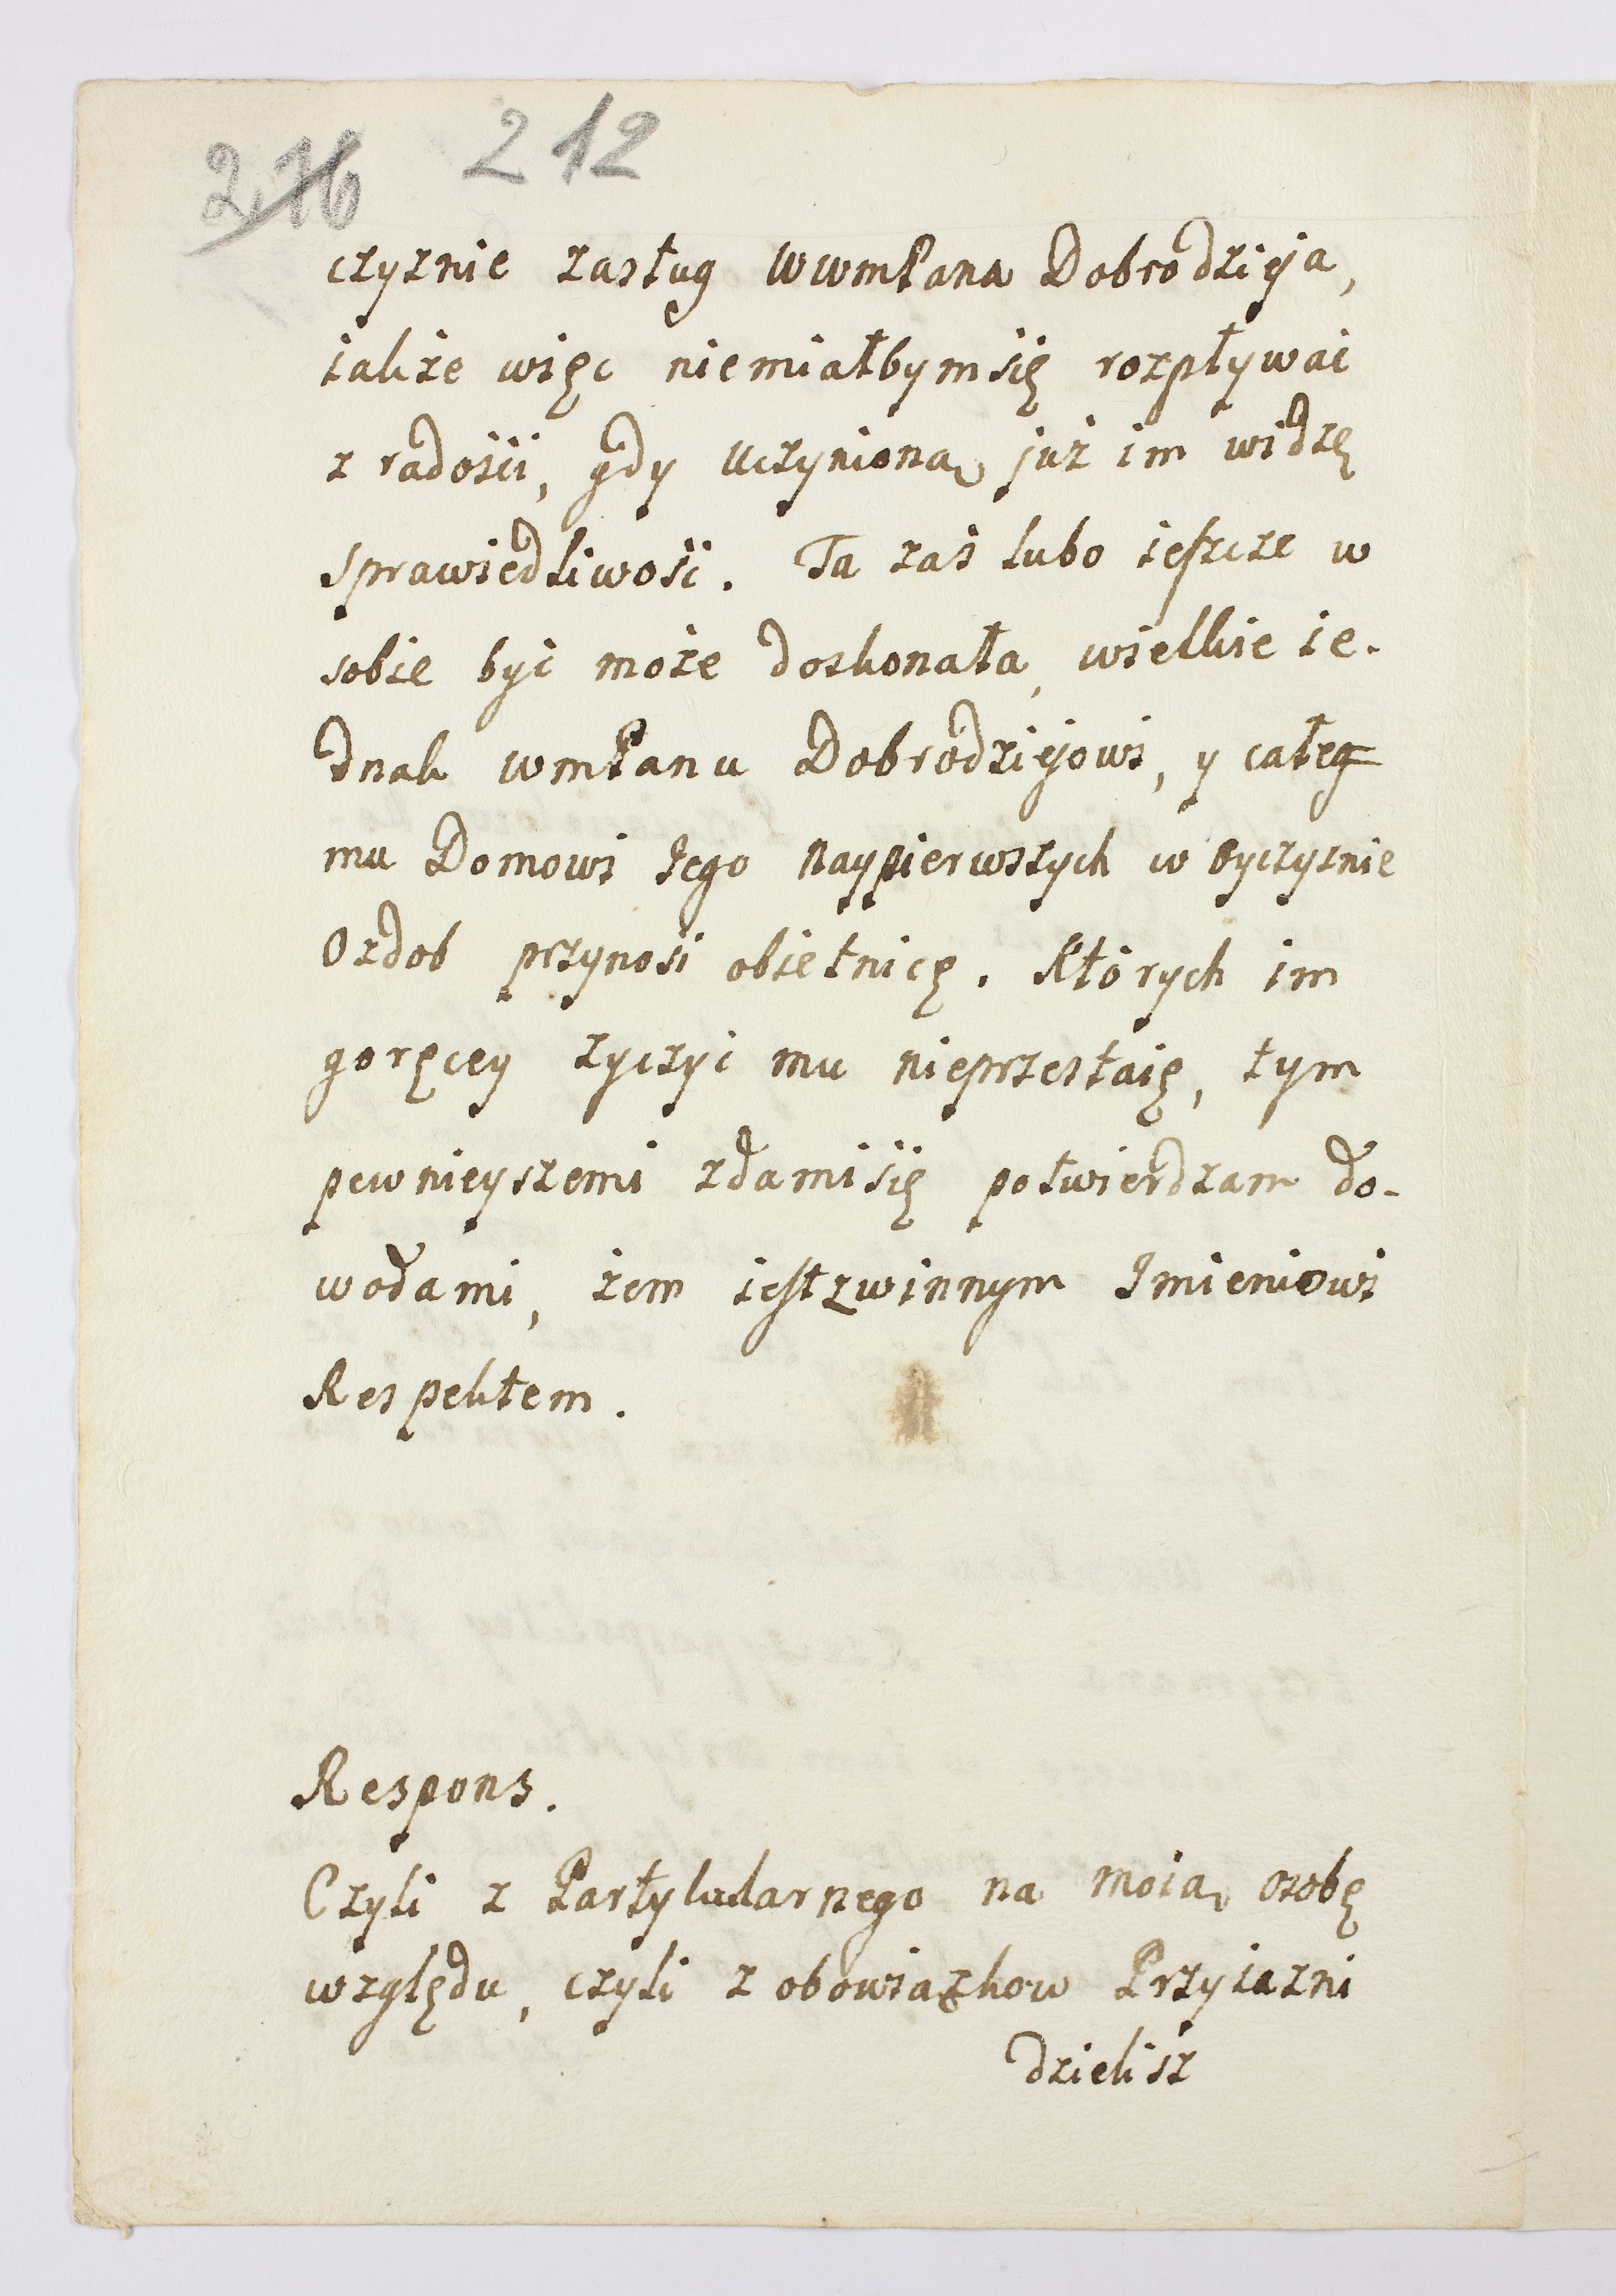 216 212
czyznie zasług WwmPana Dobrodzieja,
iakże więc niemiałbymsię rozpływać
z radości, gdy uczynioną już im widzę
sprawiedliwość. Ta zaś lubo ieszcze w
sobie być może doskonała, wielkie ie-
dnak wmPanu Dobrodziejowi, y całeg
mu Domowi Jego naypierwszych w oyczyznie
Ozdob przynosi obietnicę. Których im
goręcey zyczyć mu nieprzestaię, tym
pewnieyszemi zdamisię potwierdzam do-
wodami, żem iest z winnym Imieniowi
Respektem.
Respons.
Czyli z Partykularnego na moią osobę
względu, czyli z obowiązkow Przyiazni
dzielisz